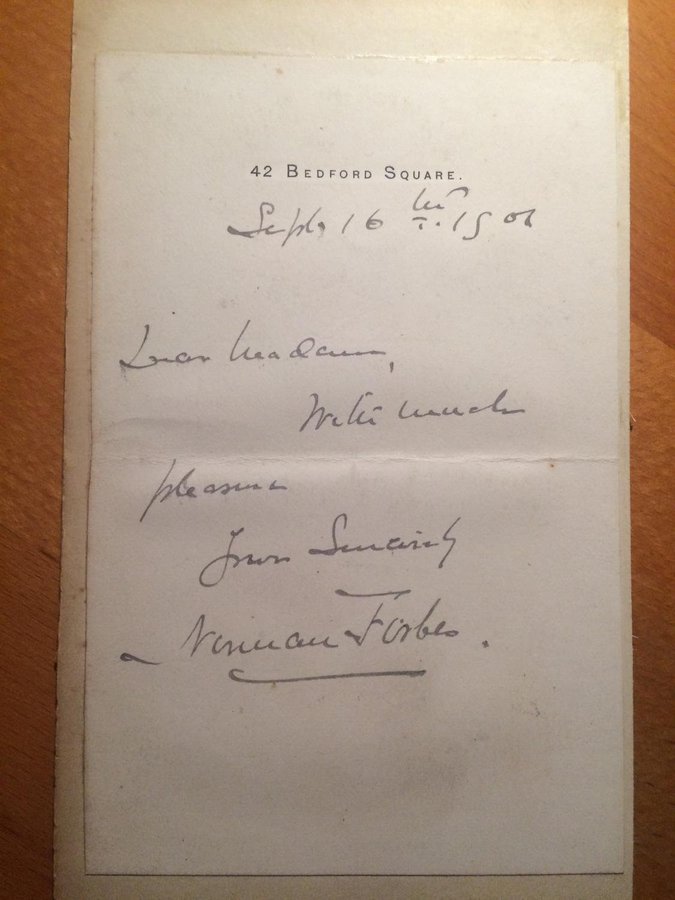 42 BEDFORD SQUARE.
Sept. 16th. 1901
Dear Madam,
With much
pleasure
Yours Sincerely
Norman Forbes.